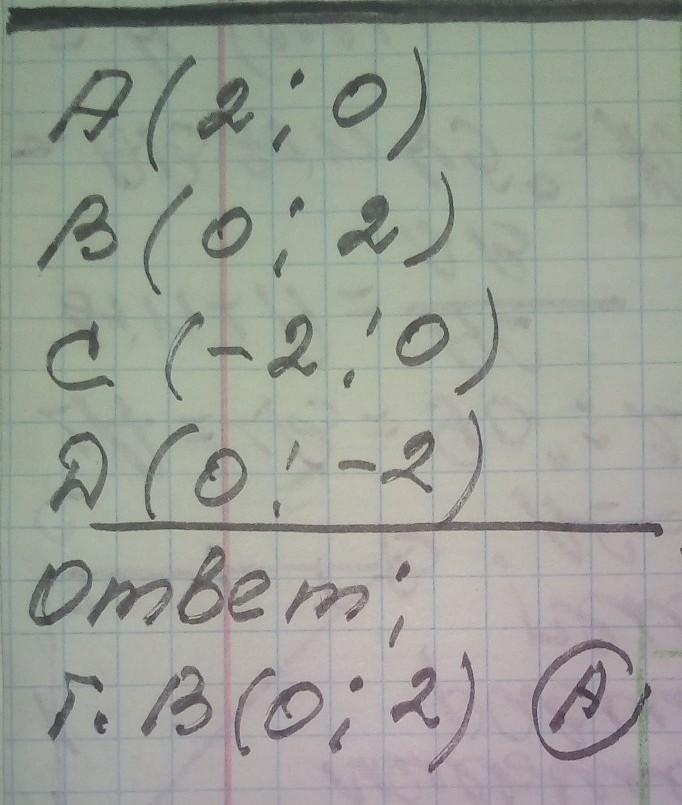 A(2;0)
B(0;2)
C(-2;0)
D(0;-2)
Ответ;
т. B(0;2) A